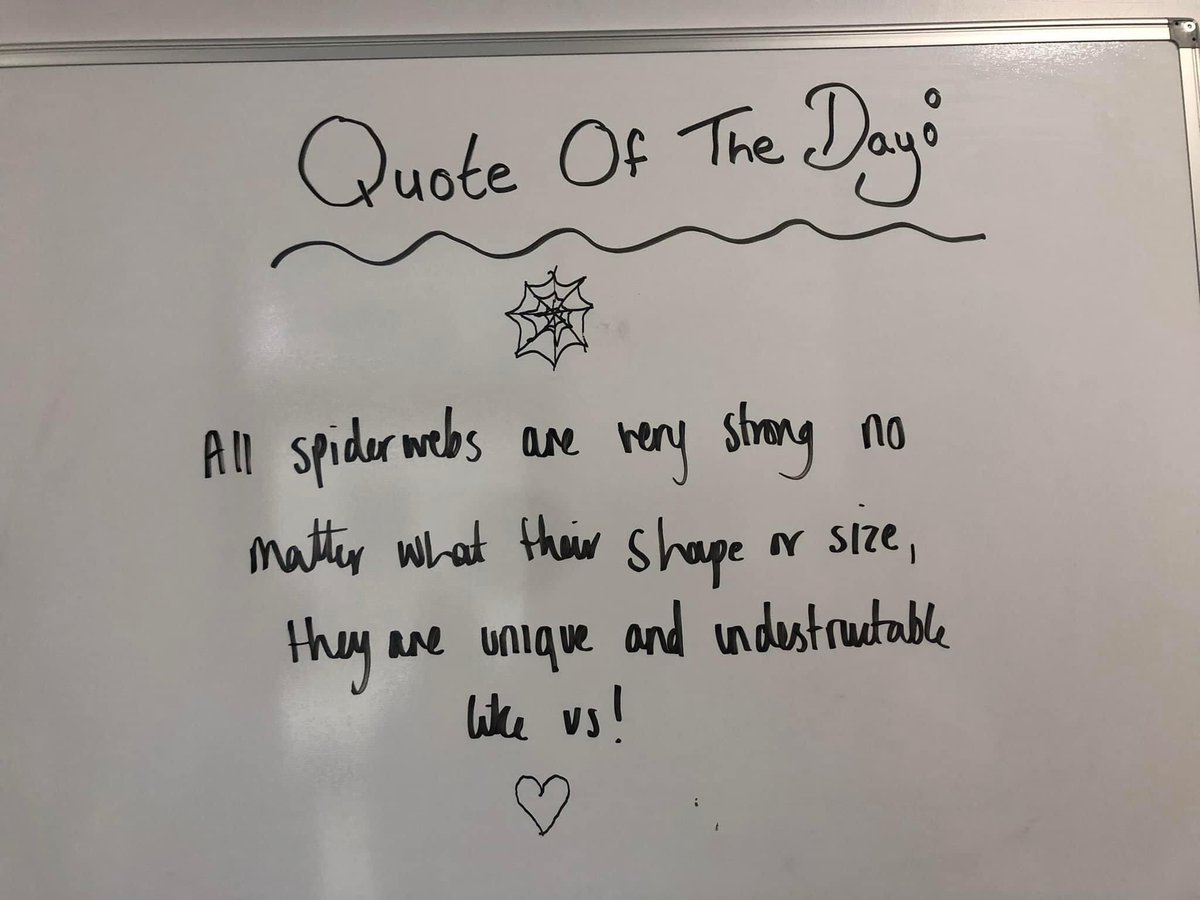 Quote Of The Day:
All spiderwebs are very strong no
matter what their shape or size,
they are unique and indestructable
like us!